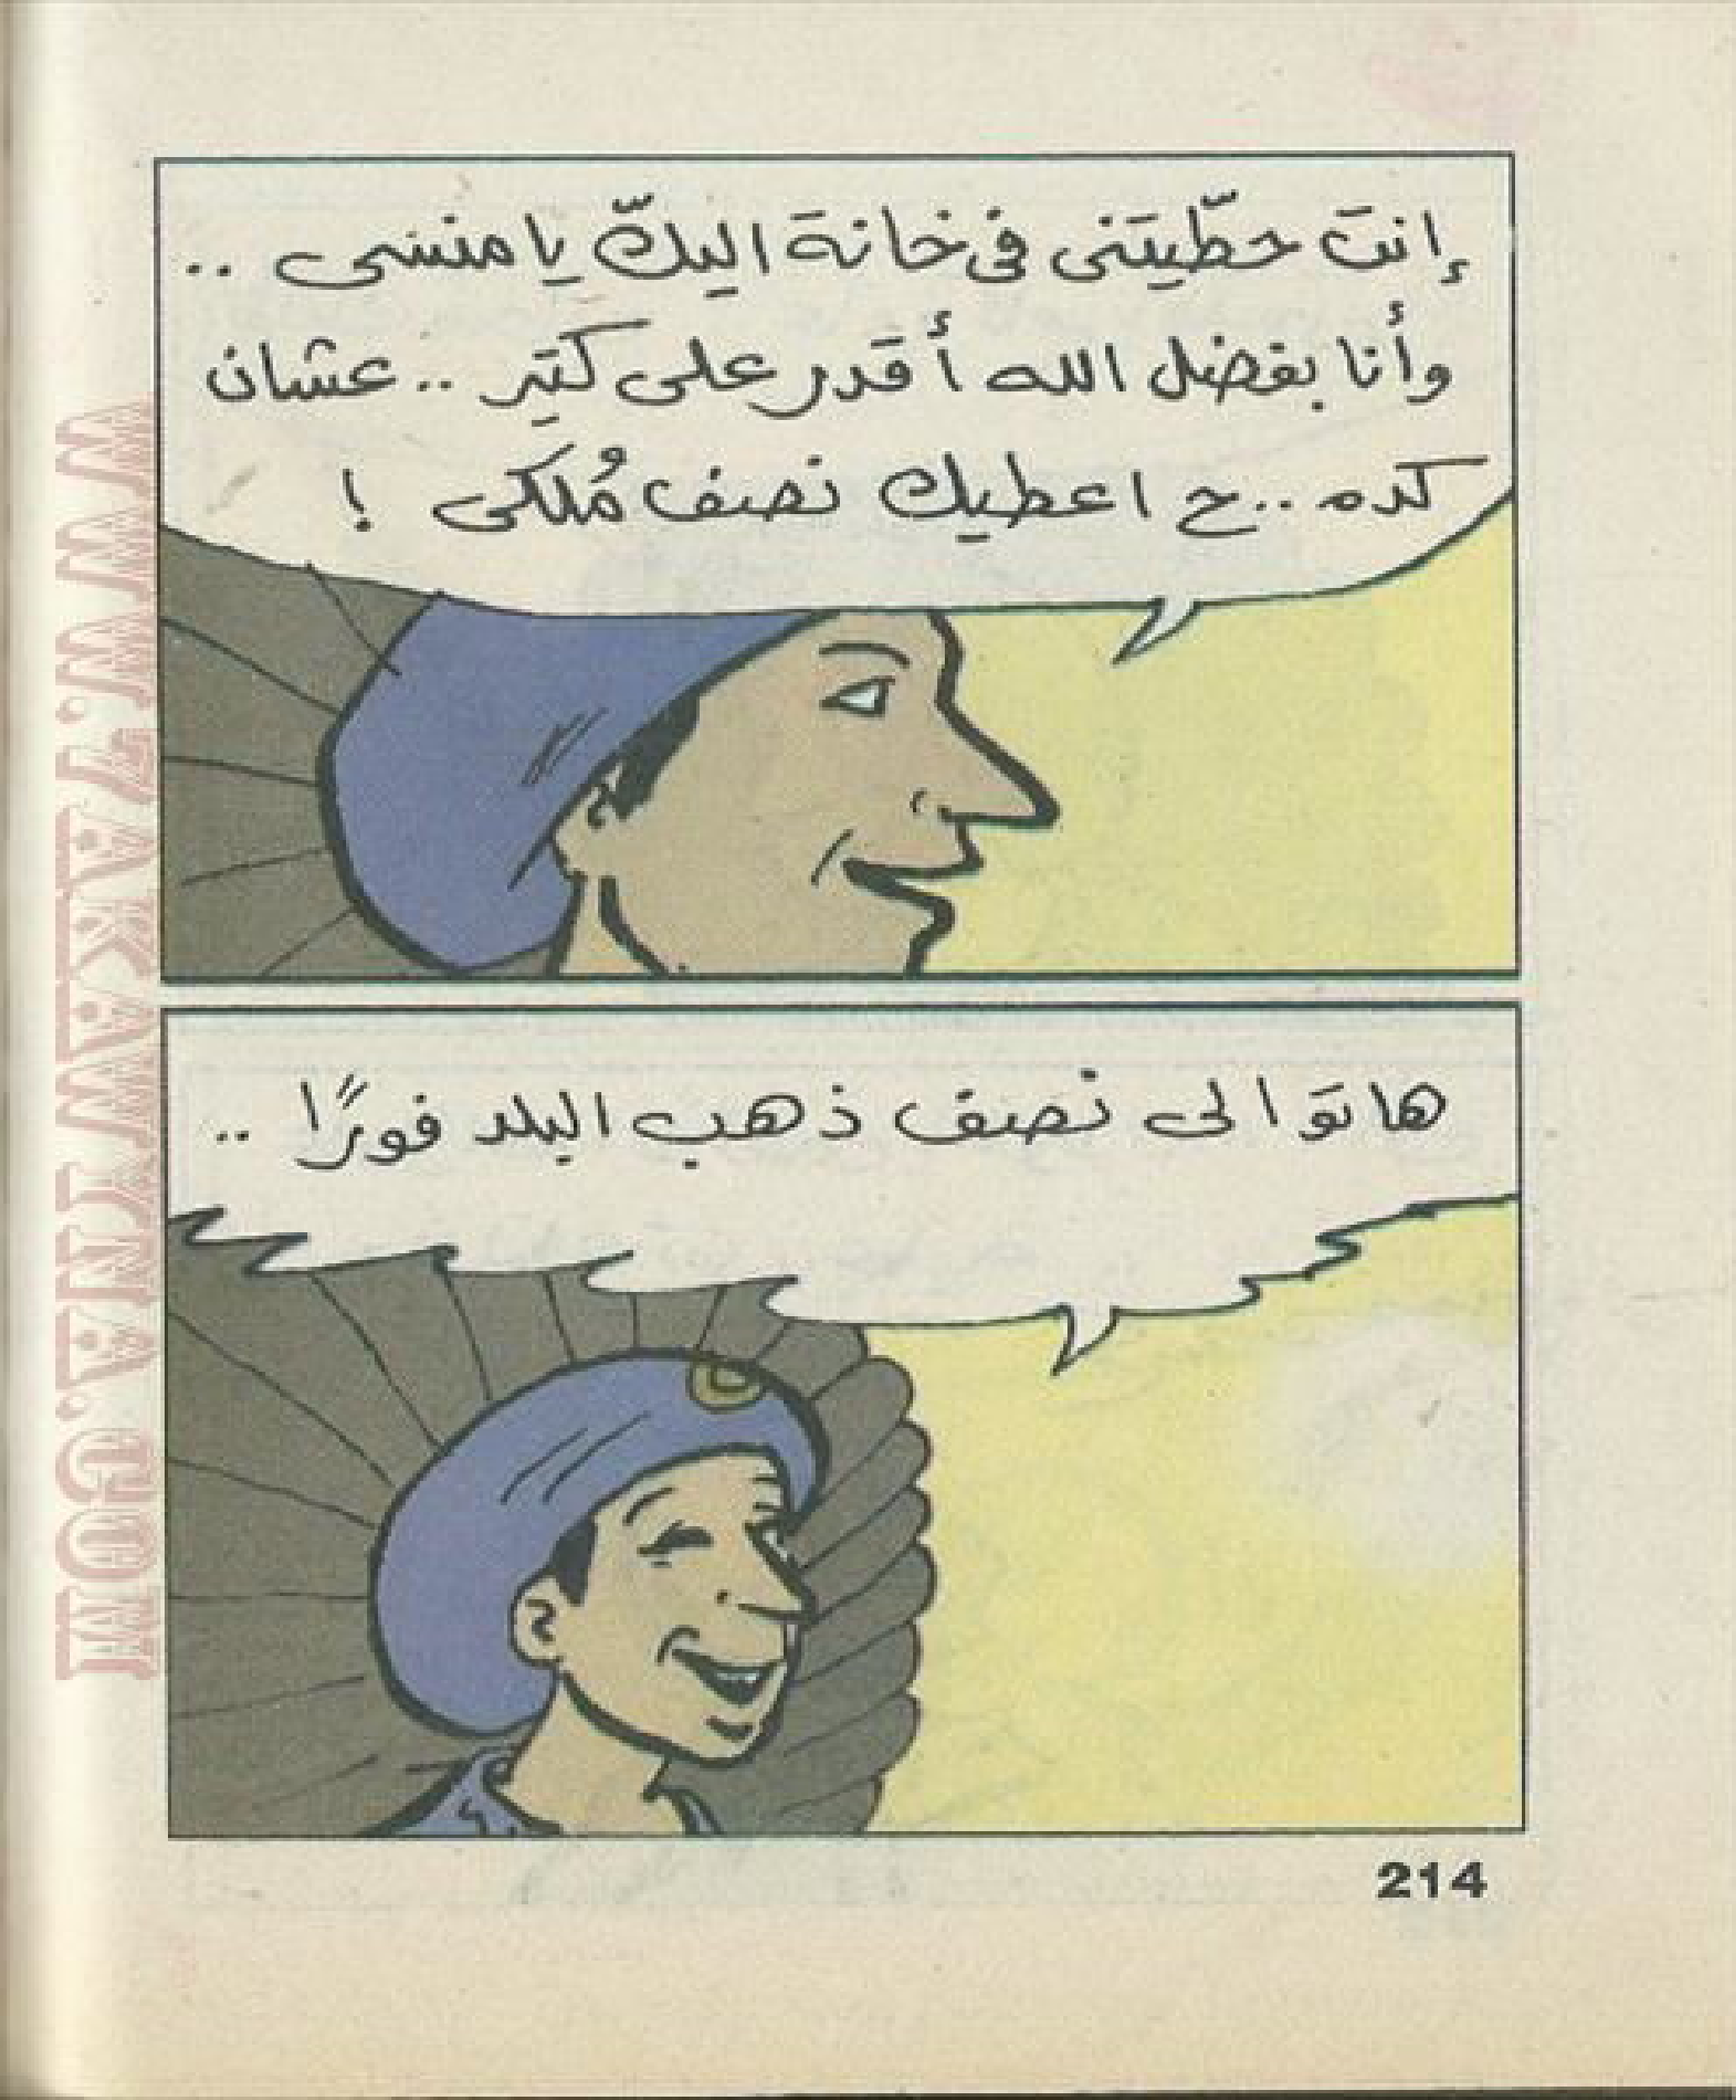 إنتَ حطّيتنى فى خانة اليكّ يا منسى ..
وأنا بفضل الله أقدر على كتير .. عشان
كده .. ح اعطيك نصف مُلكى !
هاتوا لى نصف ذهب البلد فورًا ..
214
WWW.TAKAWTNA.COM